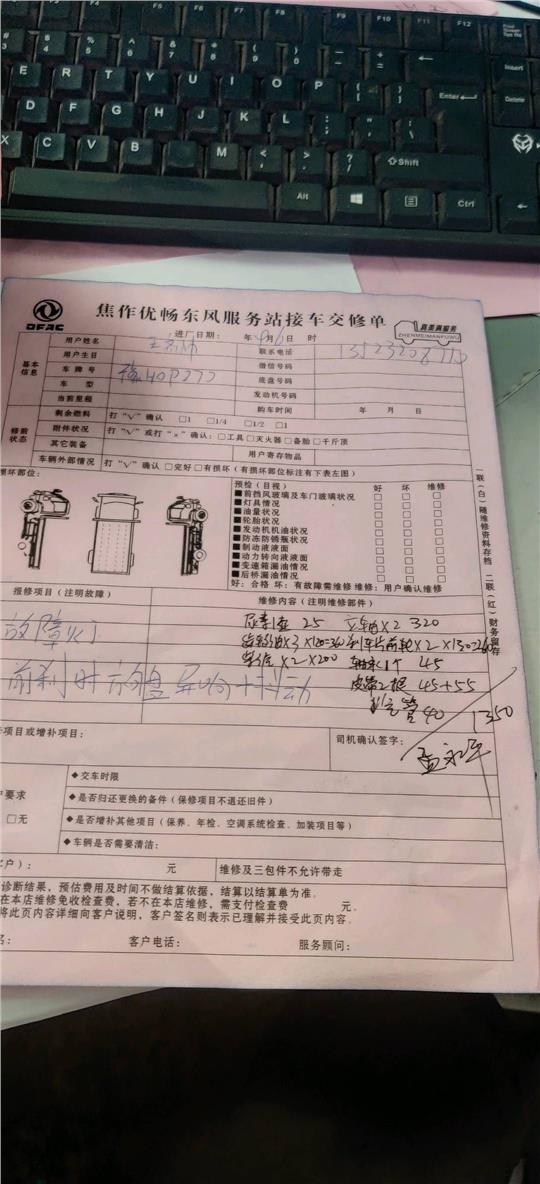 F7 F8 F9 F10 F11 F12
E R T Y U I O P
Enter
Insert
Delete
D F G H J K L
X C V B N M
Shift
Alt
Ctrl
DFAC
焦作优畅东风服务站接车交修单
真美满服务
ZHENMEIMANFUWU
进厂日期: 年 9月6日 时
基本信息
用户姓名
联系电话
用户生日
微信号码
车牌号
底盘号码
车型
发动机号码
当前里程
购车时间 年 月 日
修前状态
剩余燃料 打“√”确认 □1 □1/4 □1/2 □1
附件状况 打“√”或打“×”确认: □工具□灭火器□备胎□千斤顶
其它装备
用户寄存物品
车辆外部情况 打“√”确认 □完好□有损坏(有损坏部位标注有下表左图)
损坏部位:
预检(目视) 好 坏 维修
■前挡风玻璃及车门玻璃状况 □ □ □
■灯具情况 □ □ □
■油量状况 □ □ □
■轮胎状况 □ □ □
■发动机机油状况 □ □ □
■防冻防锈瓶状况 □ □ □
■制动液液面 □ □ □
■动力转向液液面 □ □ □
■变速箱漏油情况 □ □ □
■后桥漏油情况 □ □ □
好: 合格 坏: 有故障需维修 维修: 用户确认维修
一联(白)随维修资料存档 二联(红)财务留存
报修项目(注明故障)
维修内容(注明维修部件)
故障灯
25
×2 320
×3×120=360 刹车片前轮×2×130=260
×2×200 轴承1个 45
前刹时方向盘异响+抖动
皮带2根 45+55
管 40
1350
项目或增补项目:
司机确认签字:
要求
□无
◆交车时限
◆是否归还更换的备件(保修项目不退还旧件)
◆是否增补其他项目(保养、年检、空调系统检查、加装项目等)
◆车辆是否需要清洁:
客户): 元
维修及三包件不允许带走
诊断结果,预估费用及时间不做结算依据,结算以结算单为准。
在本店维修免收检查费,若不在本店维修,需支付检查费 元。
将此页内容详细向客户说明,客户签名则表示已理解并接受此页内容。
名:
客户电话:
服务顾问: